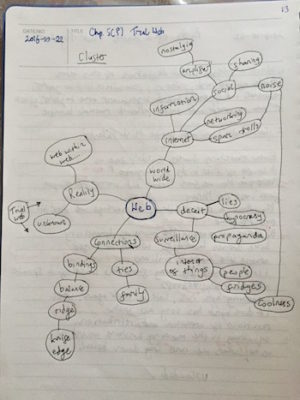 13
DATE/NO.
2016-09-22
TITLE
Chp. 5(P) Trial Web
Cluster
nostalgia
amplifier
sharing
social
noise
information
networking
internet
spam trolls
world
wide
web within
web
Reality
Trial
web
unknown
Web
deceit
lies
hypocrasy
propaganda
Surveillance
connections
bindings
ties
family
balance
ridge
knife
edge
internet
of things
people
fridges
Coolness